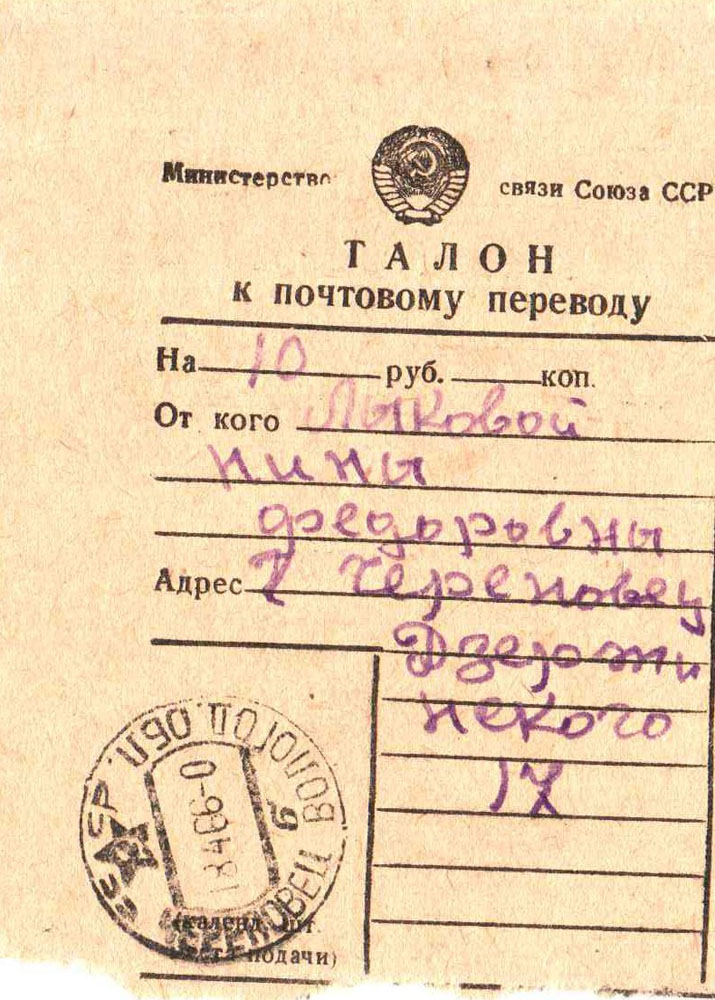 Министерство связи Союза ССР
ТАЛОН
к почтовому переводу
На 10 руб. коп.
От кого Лыковой
Нины
Федоровны
Адрес г Череповец
Дзержи
нского
17
ВОЛОГОД. ОБЛ.
ЧЕРЕПОВЕЦ
(календ. шт.
подачи)